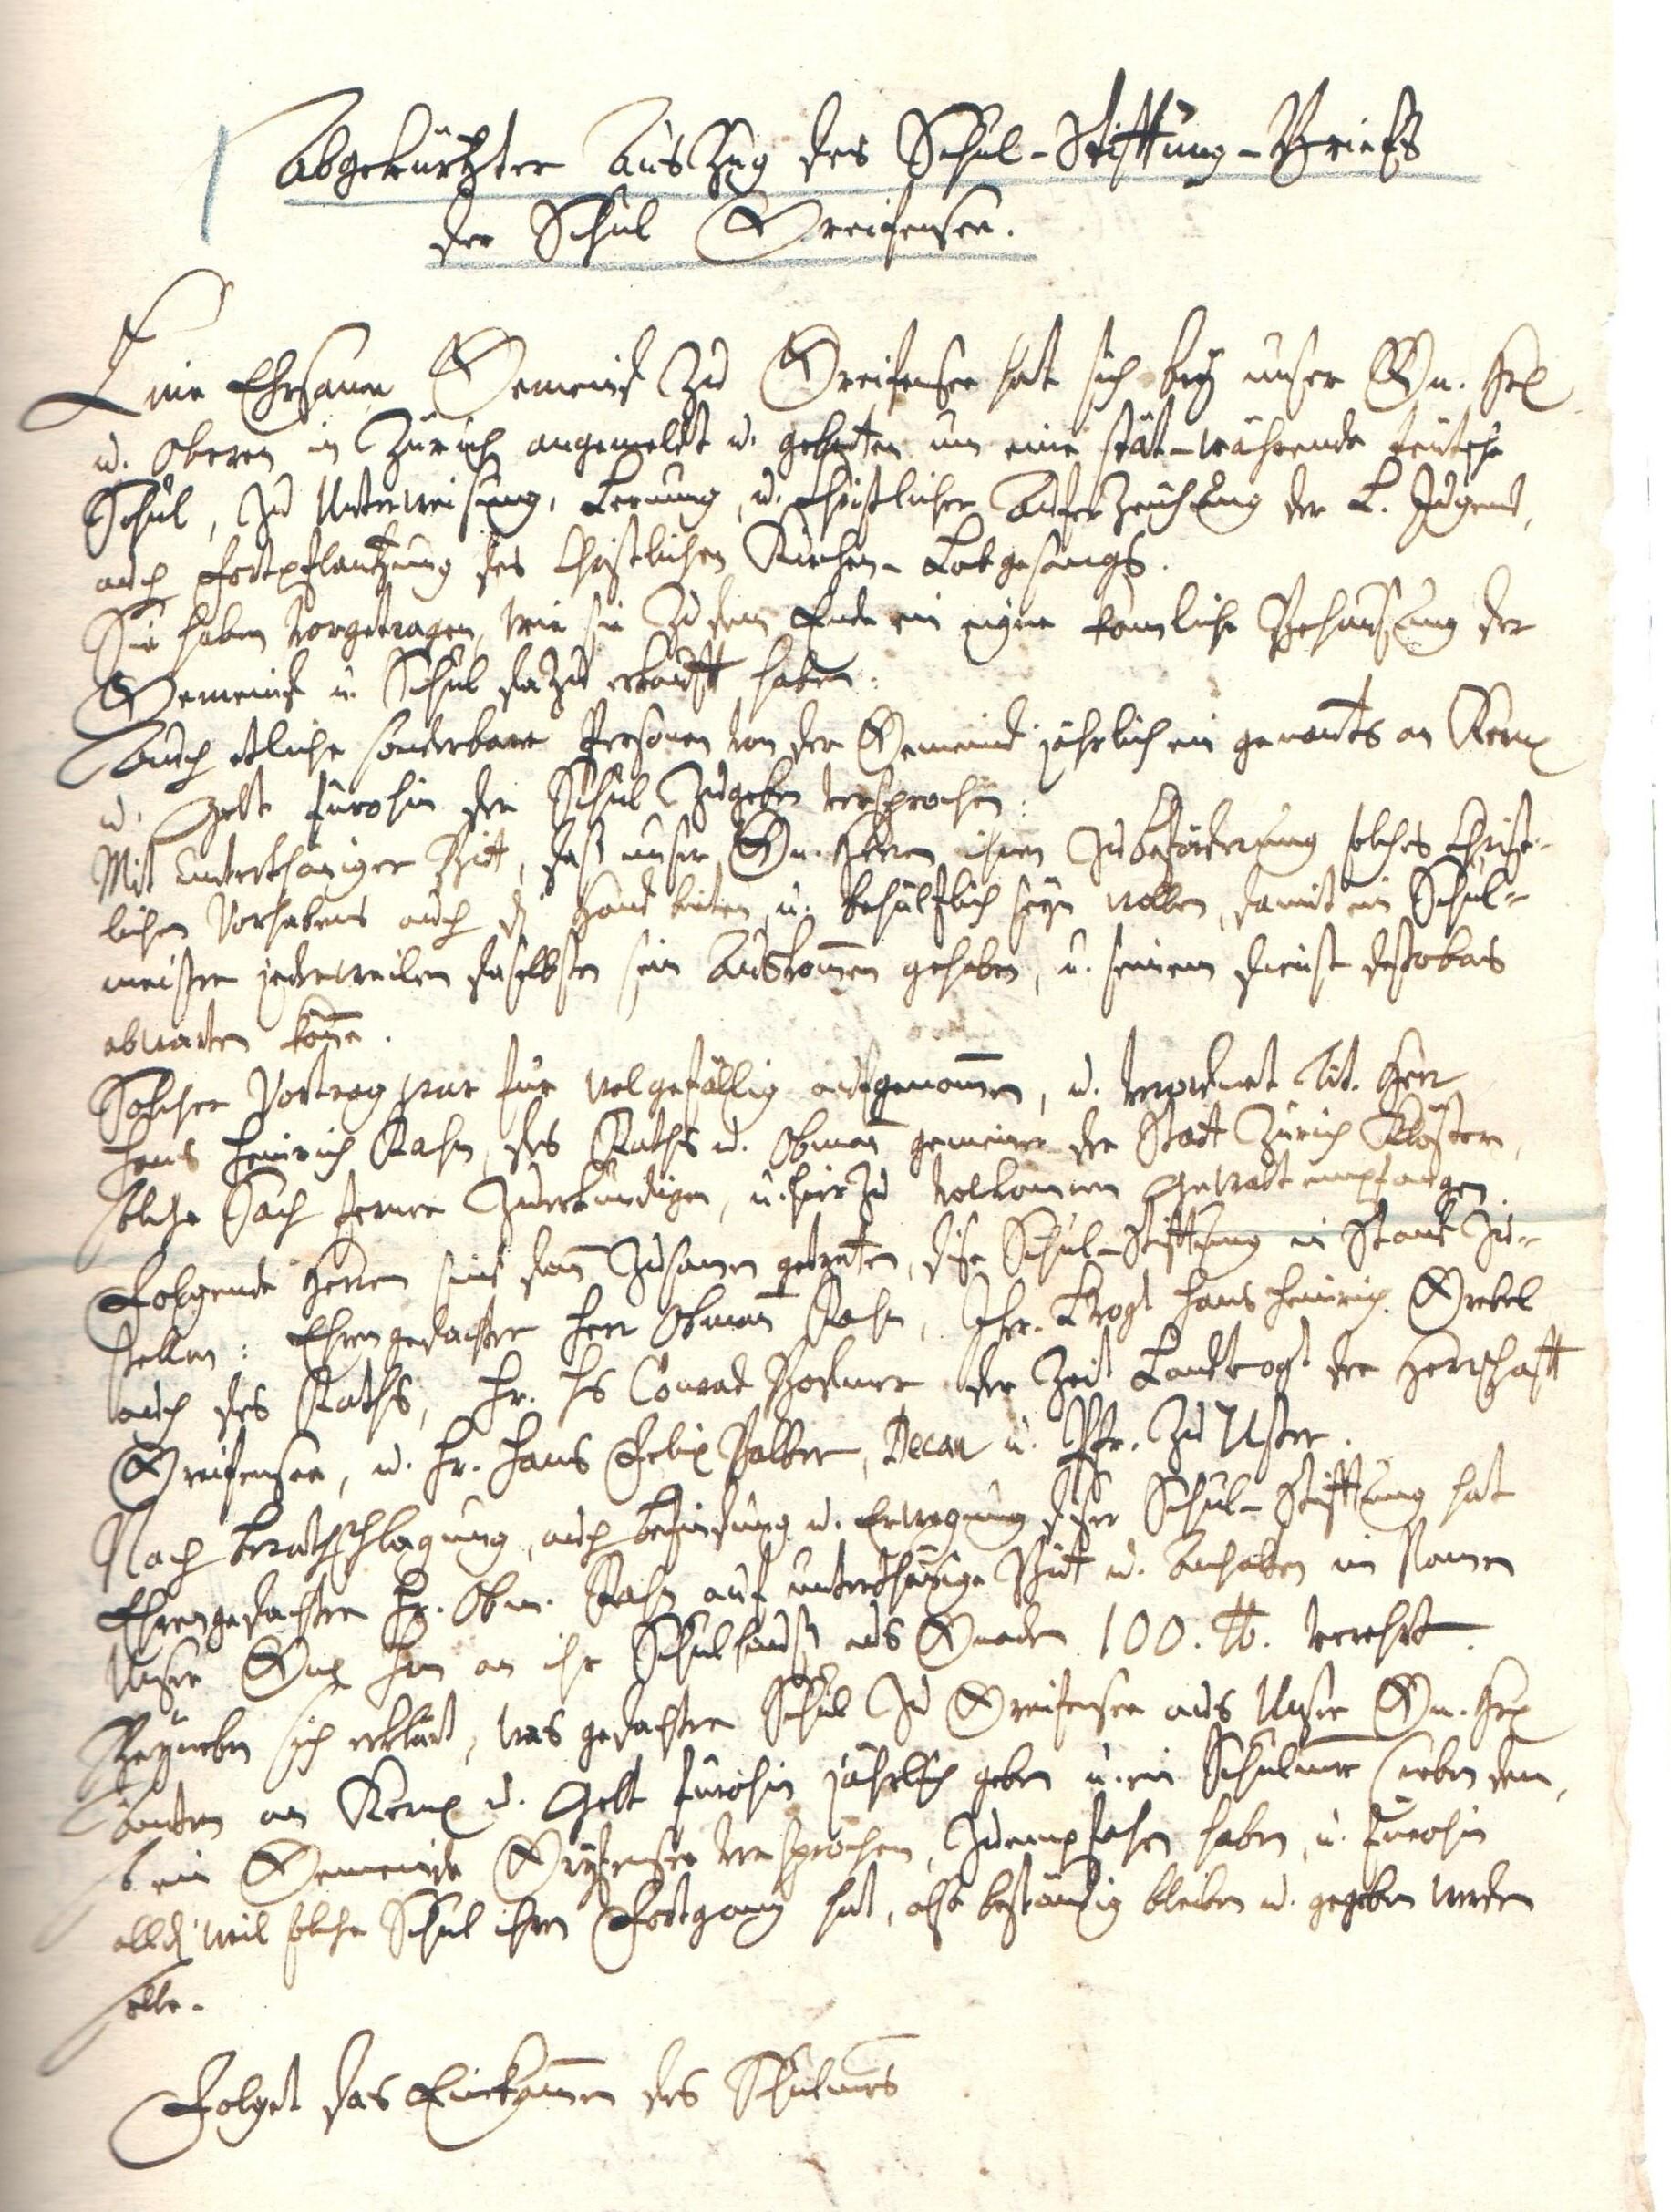 Abgekürtzter Auszug des Schul-Stifftung-Briefs
der Schul Greifensee.
Eine Ehrsame Gemeind zu Greifensee hat sich bey unser Gn. Hrn
u. Oberen in Zürich angemeldt u. gebetten um eine stät-währende teütsche
Schul, zu Unterweisung, Lernung, u. Christlicher Auferzeühung der L. Jugend,
auch Fortpflantzung des Christlichen Kirchen-Lobgesangs.
Sie haben vorgetragen, wie sie zu dem Ende ein eigne komliche Behausung der
Gemeind u. Schul dazu erkaufft haben.
Auch etliche sonderbare Personen von der Gemeind jährlich ein genants an Kernen
u. Gelt fürohin der Schul zugeben versprochen:
Mit unterthäniger Bitt, daß unser Gn. Herren ihnen zu Beförderung solches Christ-
lichen Vorhabens auch die Hand bieten, u. behülflich seyn wollen, damit ein Schul-
meister jederweilen daselbsten sein Auskommen gehaben, u. seinem Dienst destobas
abwarten könne.
Solcher Vortrag war für wolgefällig aufgenommen, u. verordnet Tit. Herr
Hans Heinrich Rahn, des Raths u. Obmann gemeiner der Statt Zürich Klöstern,
solche Sach ferner zuerkundigen, u. hierzu volkommen Gewalt empfangen.
Folgende Herren sind dann zusamen getretten, dise Schul-Stifftung in Stand zu-
stellen: Ehrengedachter Herr Obmann Rahn, Jhr. Lvogt Hans Heinrich Grebel
auch des Raths, Hr. Hs Conrad Bodmer der Zeit Landtvogt der Herrschafft
Greifensee, u. Hr. Hans Felix Balber, Decan u. Pfr. zu Uster.
Nach Berathschlagung, auch Befindung u. Erwegung diser Schul-Stifftung hat
Ehrengedachter Hr. Obm. Rahn auf unterthänige Bitt u. Anhalten im Namen
Unser Gn. Hrn an ihr Schulhauß aus Gnaden 100. ℔. verehrt.
Beyneben sich erklärt, was gedachter Schul zu Greifensee aus Unser Gn. Hrn
Ämtern an Kernen u. Gelt fürohin jährlich geben u. ein Schulmr (neben dem,
so ein Gemeinde Gryfensee versprochen, zuempfahen haben, u. fürohin
alldiweil solche Schul ihren Fortgang hat, also beständig bleiben u. gegeben werden
solle.
Folget das Einkommen des Schulmrs